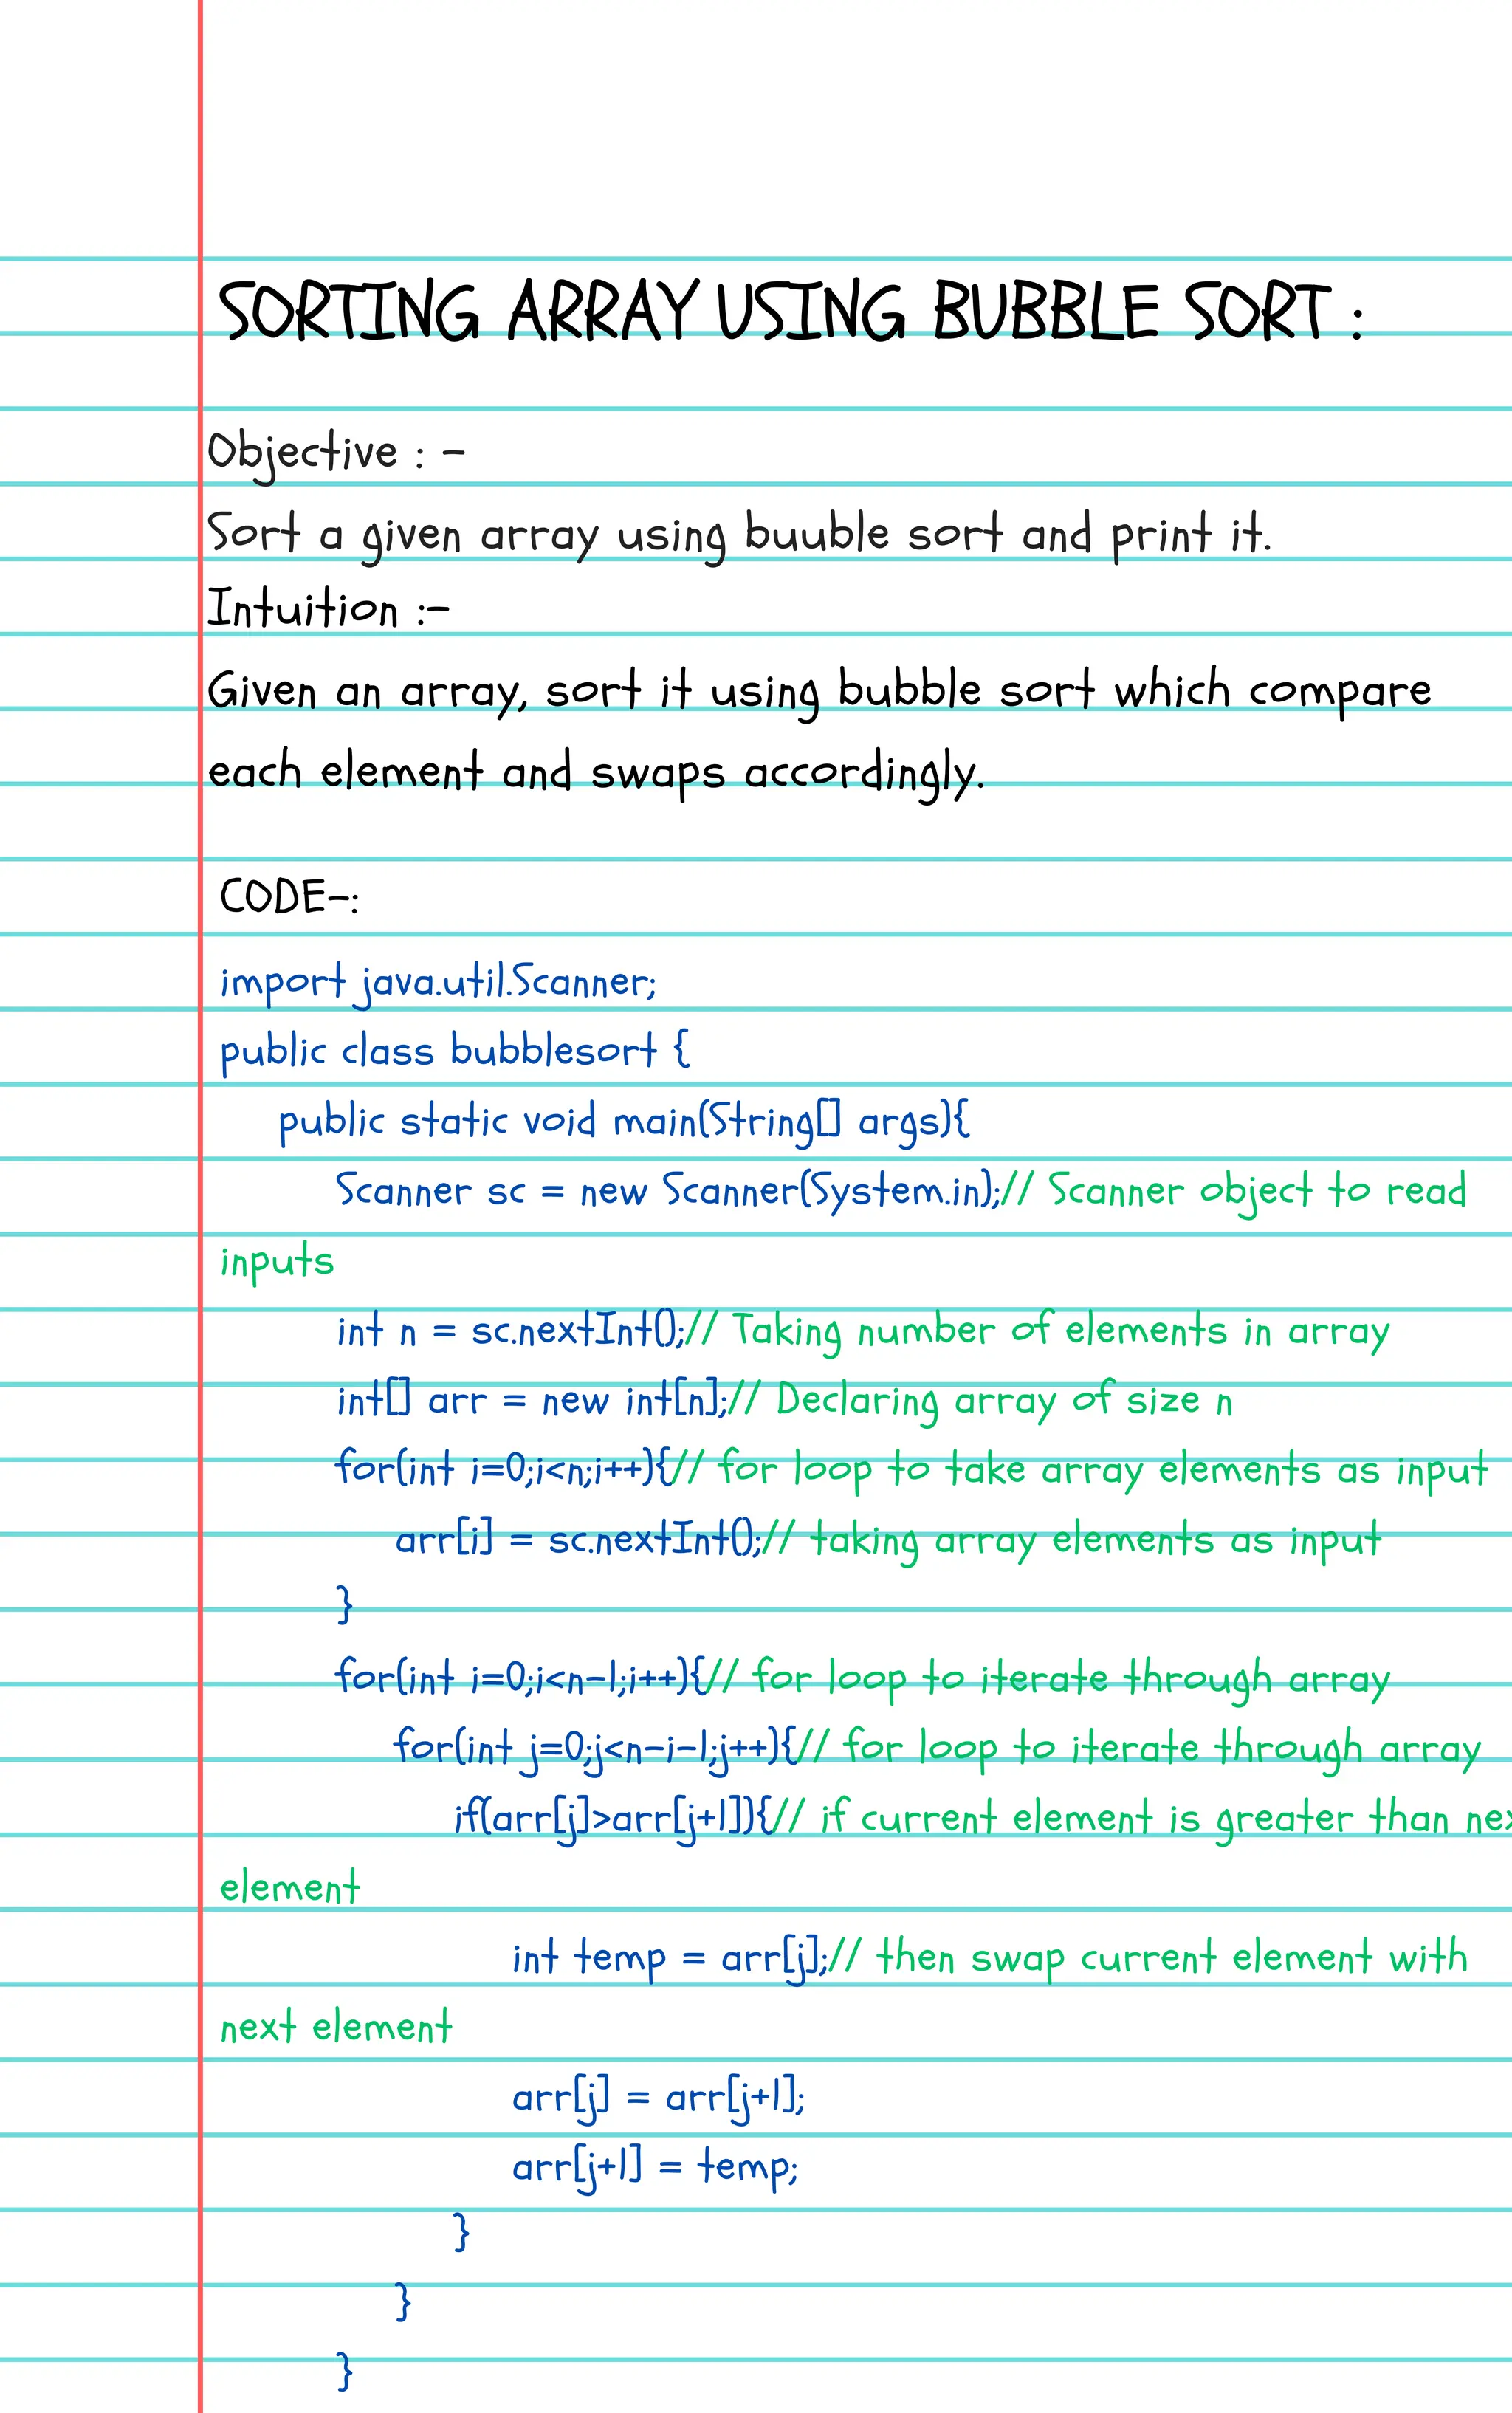 SORTING ARRAY USING BUBBLE SORT :
Objective : -
Sort a given array using buuble sort and print it.
Intuition :-
Given an array, sort it using bubble sort which compare
each element and swaps accordingly.
CODE-:
import java.util.Scanner;
public class bubblesort {
public static void main(String[] args){
Scanner sc = new Scanner(System.in);// Scanner object to read
inputs
int n = sc.nextInt();// Taking number of elements in array
int[] arr = new int[n];// Declaring array of size n
for(int i=0;i<n;i++){// for loop to take array elements as input
arr[i] = sc.nextInt();// taking array elements as input
}
for(int i=0;i<n-1;i++){// for loop to iterate through array
for(int j=0;j<n-i-1;j++){// for loop to iterate through array
if(arr[j]>arr[j+1]){// if current element is greater than nex
element
int temp = arr[j];// then swap current element with
next element
arr[j] = arr[j+1];
arr[j+1] = temp;
}
}
}